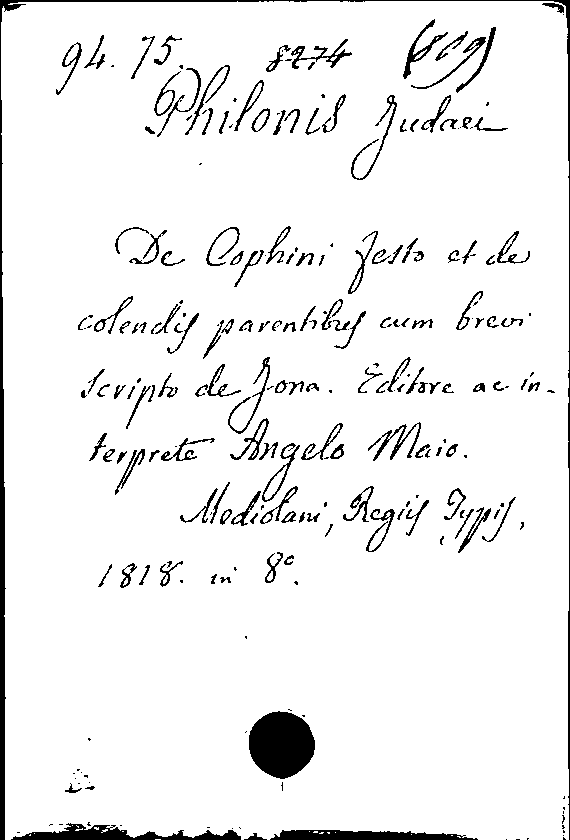 94. 75. 8274 (809)
Philonis Judaei
De Cophini festo et de
colendis parentibus cum brevi
scripto de Jona. Editore ac in-
terprete Angelo Maio.
Mediolani, Regiis Typis,
1818. in 8°.